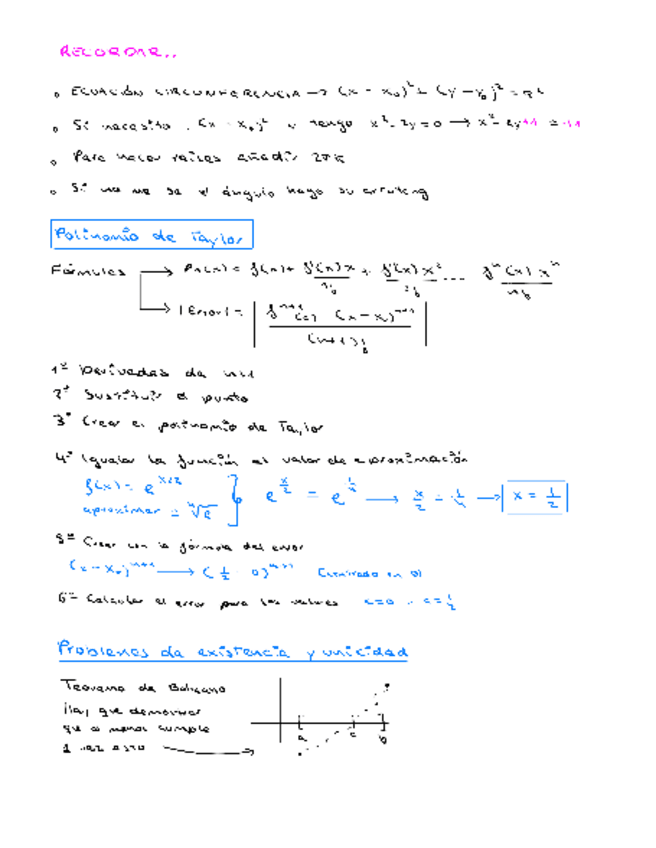 RECORDAR..
• ECUACIÓN CIRCUNFERENCIA → (x - x₀)² + (y - y₀)² = R²
• Si necesito (x - x₀)² y tengo x² - 2y = 0 → x² - 2y +1 = +1
• Para hacer raíces añadir 2πk
• Si no me se el ángulo hago su arctang
Polinomio de Taylor
Fórmulas → Pn(x) =
→ |Error| =
1º Derivadas de n+1
2º Sustituir el punto
3º Crear el polinomio de Taylor
4º Igualar la función al valor de aproximación
f(x) = e^x/2
aproximar = ⁴√e
e^x/2 = e^1/4 → x/2 = 1/4 → x = 1/2
5º Crear con la fórmula del error
(x - x₀)ⁿ⁺¹ → (1/2 0)ⁿ⁺¹ (centrado en 0)
6º Calcular el error para los valores c=0 c=1/2
Problemas de existencia y unicidad
Teorema de Bolzano
Hay que demostrar
que a menos cumple
1 vez esto →
a c b